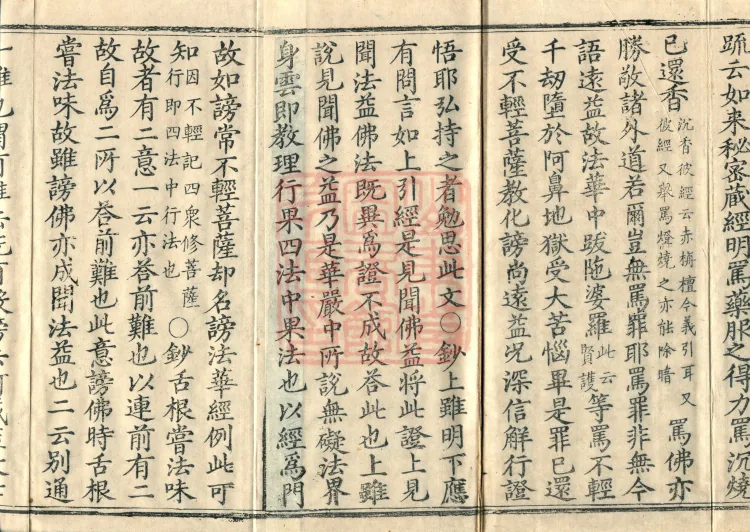 疏云如来秘密蔵經明罵藥服之得力罵沉燒
已還香 沉香彼經云赤栴檀令義引耳又 彼經又舉罵燈燒之亦能除暗 罵佛亦
勝敬諸外道若爾豈無罵罪耶罵罪非無今
語遠益故法華中跋陁婆羅 此云賢護 等罵不輕
千刧墮於阿鼻地獄受大苦惱畢是罪已還
受不輕菩薩教化謗尚遠益况深信解行證
悟耶弘持之者勉思此文○鈔上雖明下應
有問言如上引經是見聞佛益將此證上見
聞法益佛法既異爲證不成故荅此也上雖
說見聞佛之益乃是華嚴中所說無礙法界
身雲即教理行果四法中果法也以經爲門
故如謗常不輕菩薩却名謗法華經例此可
知 因不輕記四衆修菩薩 行即四法中行法也 ○鈔舌根嘗法味
故者有二意一云亦荅前難也以連前有二
故自爲二所以荅前難也此意謗佛時舌根
嘗法味故雖謗佛亦成聞法益也二云别通